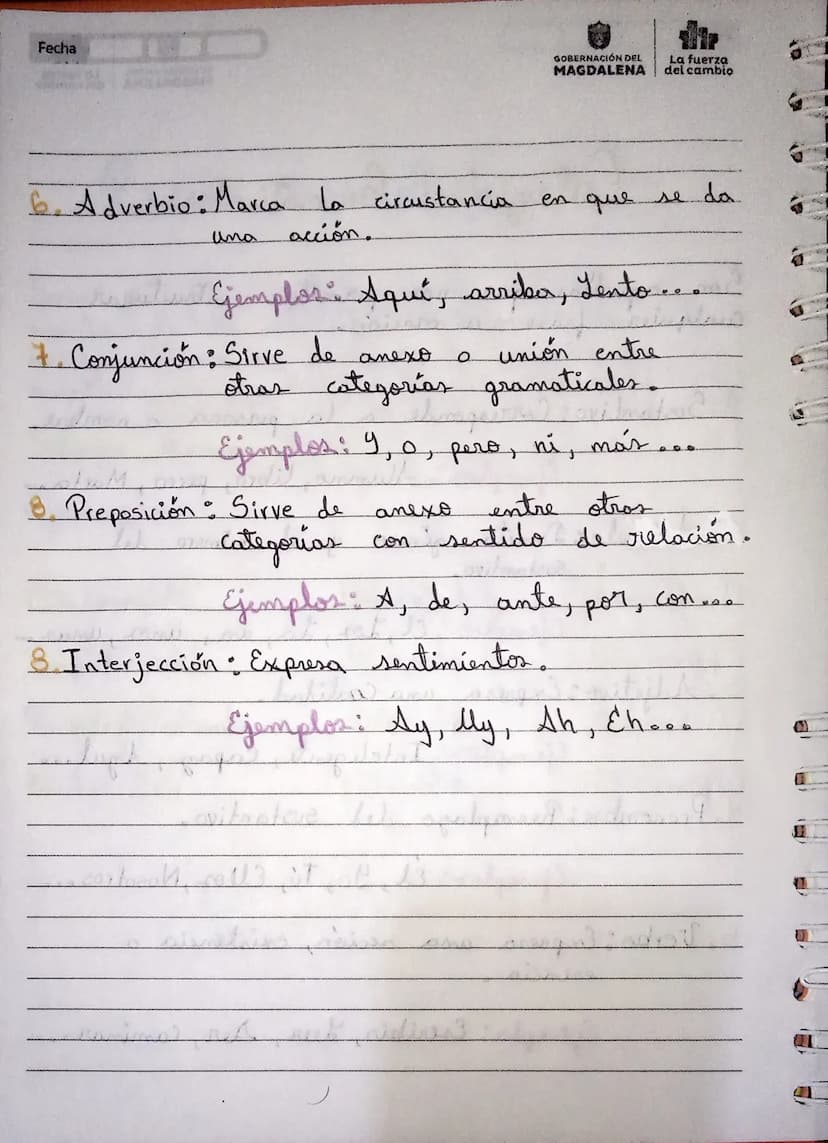 Fecha
GOBERNACIÓN DEL
MAGDALENA
La fuerza
del cambio
6. Adverbio: Marca la circustancía en que se da
una acción.
Ejemplos: Aquí, arriba, Lento...
7. Conjunción: Sirve de anexo o unión entre
otras categorías gramaticales.
Ejemplos: Y, o, pero, ni, más...
8. Preposición: Sirve de anexo entre otras
categorías con sentido de relación.
Ejemplos: A, de, ante, por, con...
8. Interjección: Expresa sentimientos.
Ejemplos: Ay, Uy, Ah, Eh...